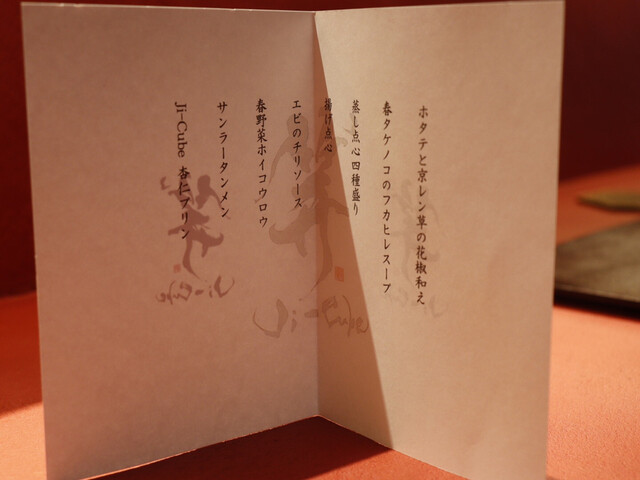 ホタテと京レン草の花椒和え
春タケノコのフカヒレスープ
蒸し点心四種盛り
揚げ点心
エビのチリソース
春野菜ホイコウロウ
サンラータンメン
Ji-Cube 杏仁プリン
Ji-Cube